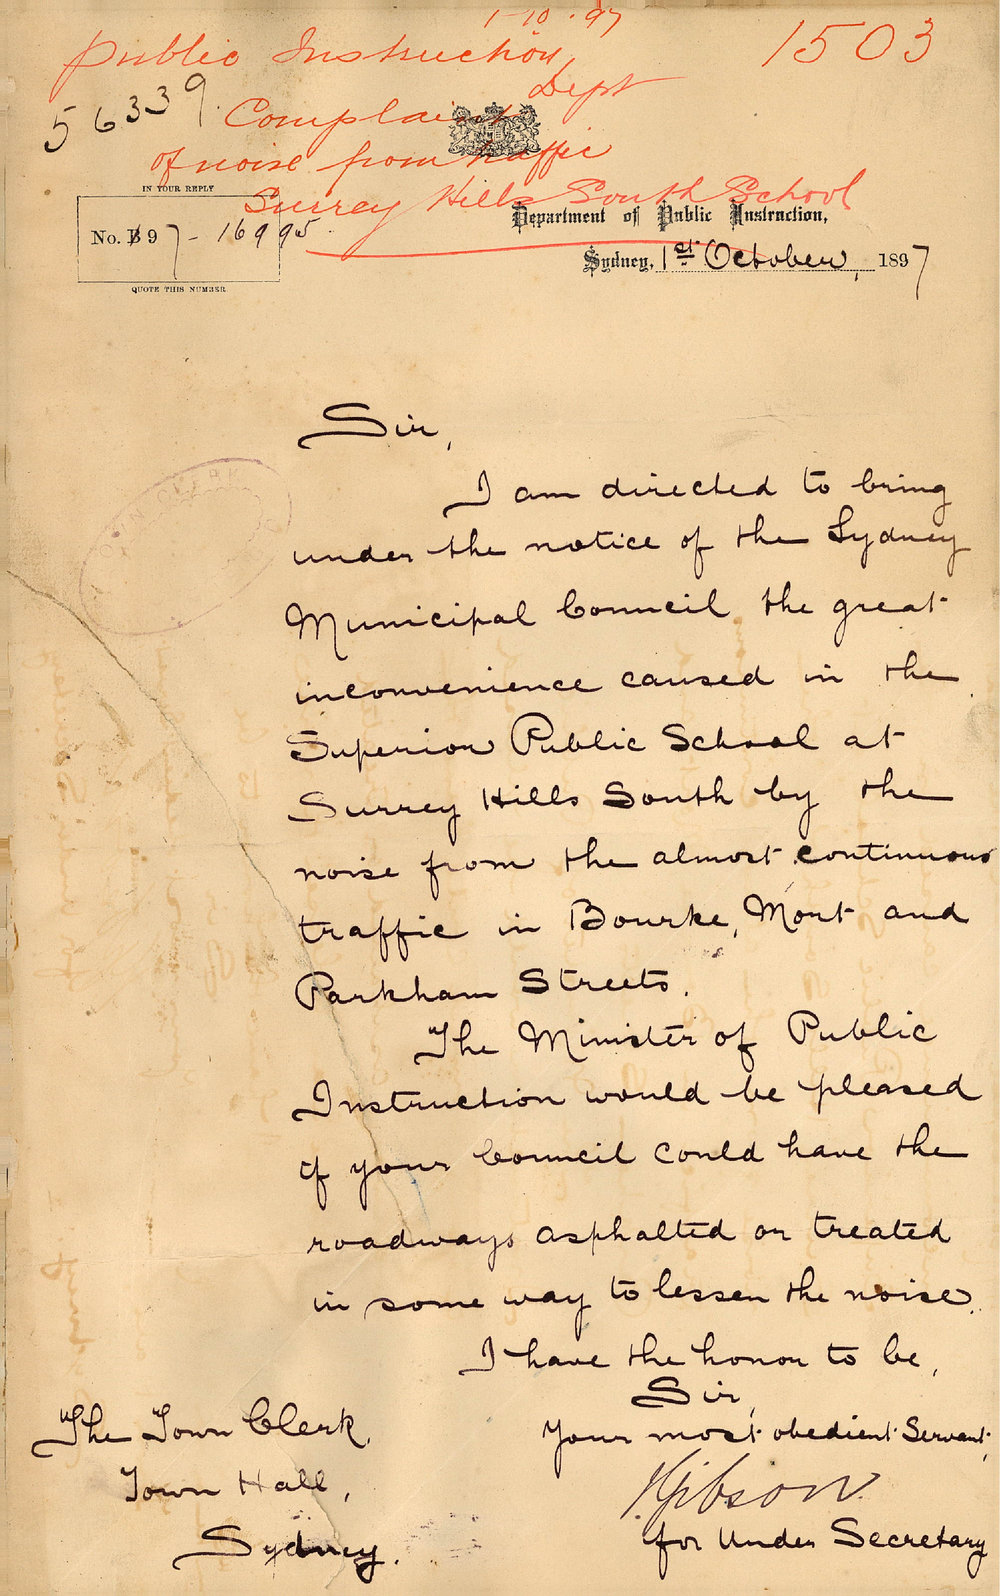 1-10-97
1503
Public Instruction
Dept
56339
Complaint
of noise from traffic
Surrey Hills South School
IN YOUR REPLY
No. B 97-16995
QUOTE THIS NUMBER
Department of Public Instruction,
Sydney, 1st October, 1897
Sir,
I am directed to bring
under the notice of the Sydney
Municipal Council the great
inconvenience caused in the
Superior Public School at
Surrey Hills South by the
noise from the almost continuous
traffic in Bourke, Mort and
Parkham Streets.
The Minister of Public
Instruction would be pleased
if your Council could have the
roadways asphalted or treated
in some way to lessen the noise.
I have the honor to be,
Sir,
Your most obedient Servant,
Gibson
for Under Secretary
The Town Clerk,
Town Hall,
Sydney.